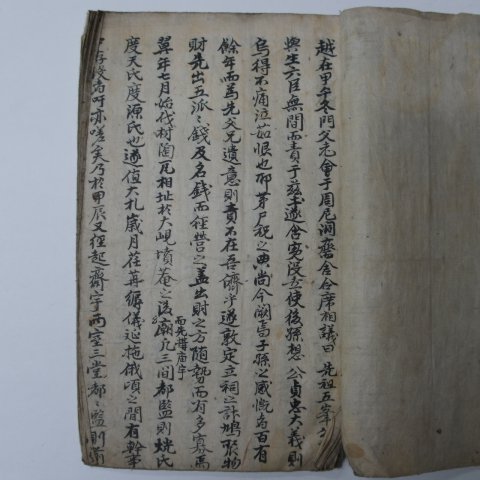 越在甲午冬門父老會于周尼洞齋舍合席相議曰 先祖五峯公
與生六臣無間而責于玆土遂舍寃沒立使後孫想 公貞忠大義則
烏得不痛泣茹恨也耶茅尸祝之典尚今闕焉子孫之感慨爲百有
餘年而爲先父兄遺意則責不在吾儕乎遂敦定立祠之計鳩聚物
財先出五派之錢及名錢而經營之盖出財之方隨勢而有多寡焉
翼年七月始伐材陶瓦相址於大峴墳菴之後
而先搆庙宇
廟凡三間都監則烑氏
度天氏度源氏也遂值大札歲月荏苒縟儀延拖俄頃之間有幹事
亦嗟矣乃於甲辰又經起齋宇兩室三堂都監則